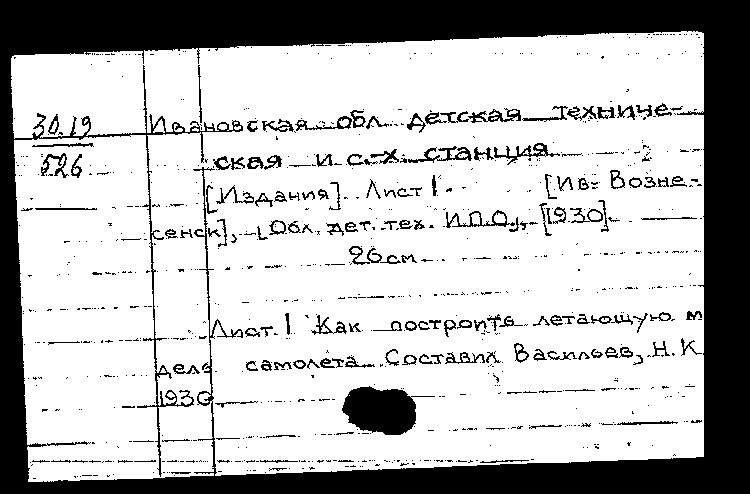 30.19
526
Ивановская обл. детская техниче-
ская и с.-х. станция.
[Издания]. Лист 1. [Ив.-Возне-
сенск], [Обл. дет. тех. И.П.О.], [1930].
26 см.
Лист. 1 Как построить летающую м
дель самолета. Составил Васильев, Н.К
1930.